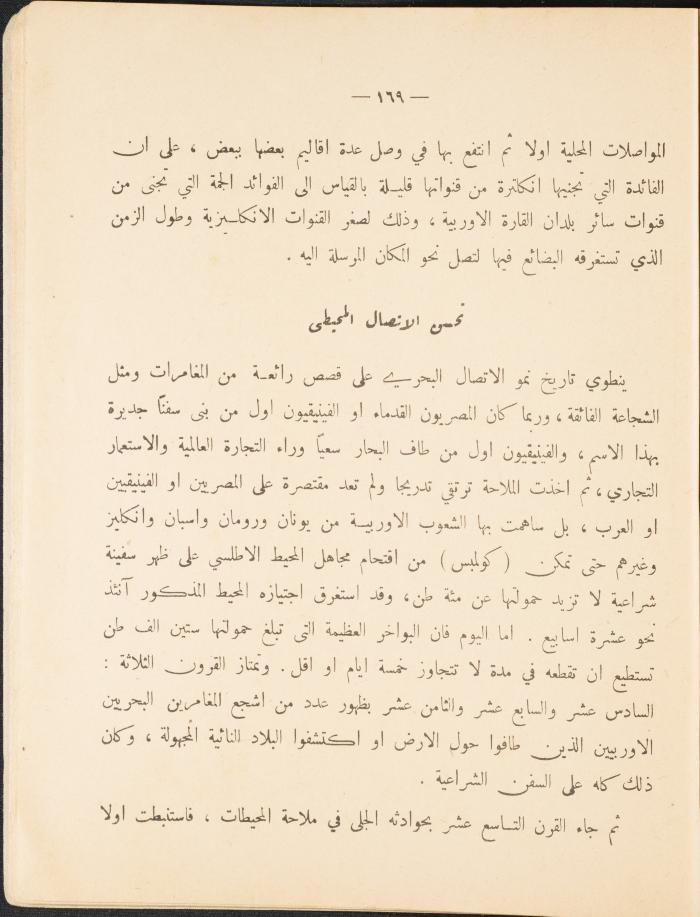 — ١٦٩ —
المواصلات المحلية اولا ثم انتفع بها في وصل عدة اقاليم بعضها ببعض ، على ان
الفائدة التي تجنيها انكلترة من قنواتها قليلة بالقياس الى الفوائد الجمة التي تجنى من
قنوات سائر بلدان القارة الاوربية ، وذلك لصغر القنوات الانكليزية وطول الزمن
الذي تستغرقه البضائع فيها لتصل نحو المكان المرسلة اليه .
تحسن الاتصال المحيطى
ينطوي تاريخ نمو الاتصال البحري على قصص رائعة من المغامرات ومثل
الشجاعة الفائقة ، وربما كان المصريون القدماء او الفينيقيون اول من بنى سفنًا جديرة
بهذا الاسم ، والفينيقيون اول من طاف البحار سعيًا وراء التجارة العالمية والاستعمار
التجاري ، ثم اخذت الملاحة ترتقي تدريجا ولم تعد مقتصرة على المصريين او الفينيقيين
او العرب ، بل ساهمت بها الشعوب الاوربية من يونان ورومان واسبان وانكليز
وغيرهم حتى تمكن ( كولمبس ) من اقتحام مجاهل المحيط الاطلسي على ظهر سفينة
شراعية لا تزيد حمولتها عن مئة طن ، وقد استغرق اجتيازه المحيط المذكور آنئذ
نحو عشرة اسابيع . اما اليوم فان البواخر العظيمة التى تبلغ حمولتها ستين الف طن
تستطيع ان تقطعه في مدة لا تتجاوز خمسة ايام او اقل . وتمتاز القرون الثلاثة :
السادس عشر والسابع عشر والثامن عشر بظهور عدد من اشجع المغامرين البحريين
الاوربيين الذين طافوا حول الارض او اكتشفوا البلاد النائية المجهولة ، وكان
ذلك كله على السفن الشراعية .
ثم جاء القرن التاسع عشر بحوادثه الجلى في ملاحة المحيطات ، فاستنبطت اولا